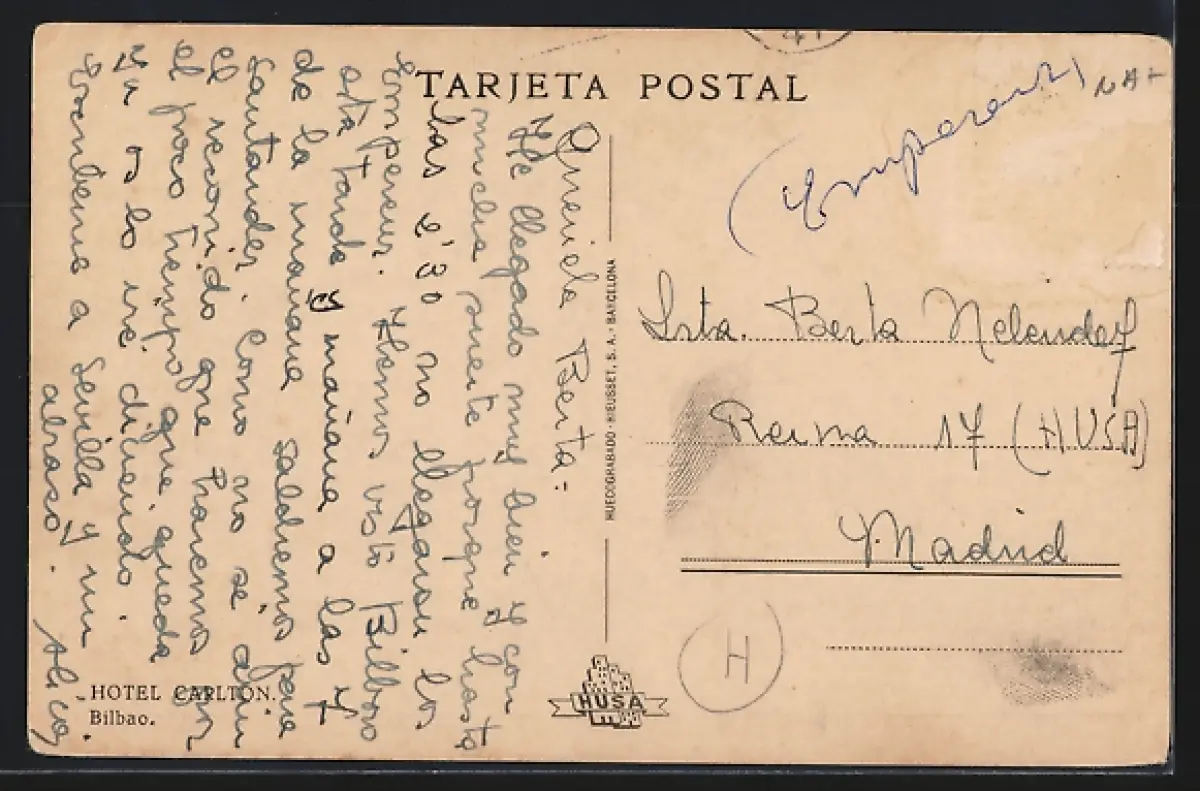 TARJETA POSTAL
Querida Berta:
He llegado muy bien y con
mucha suerte porque hasta
las 2'30 no llegaron los
Emperem. Hemos visto Bilbao
esta tarde y mañana a las 7
de la mañana saldremos para
Santander. Como no se aún
el recorrido que haremos con
el poco tiempo que queda
ya os lo iré diciendo.
Escribeme a Sevilla y un
abrazo. Alicia
HOTEL CARLTON.
Bilbao.
HUECOGRABADO - RIEUSSET, S. A. - BARCELONA
HUSA
41
Srta. Berta Melendez
Reina 17 (HUSA)
Madrid
H